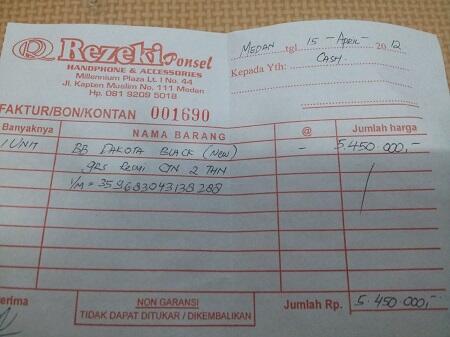 Rezeki Ponsel
HANDPHONE & ACCESSORIES
Millennium Plaza Lt. I No. 44
Jl. Kapten Muslim No. 111 Medan
Hp. 081 9209 5018
MEDAN tgl 15 - APRIL - 2012
Kepada Yth: CASH.
FAKTUR/BON/KONTAN 001690
Banyaknya NAMA BARANG @ Jumlah harga
1 UNIT BB DAKOTA BLACK (NEW) - 5.450.000,-
GRS RESMI 2 THN
359683043138288
NON GARANSI
TIDAK DAPAT DITUKAR / DIKEMBALIKAN
Jumlah Rp. 5.450.000,-
erima